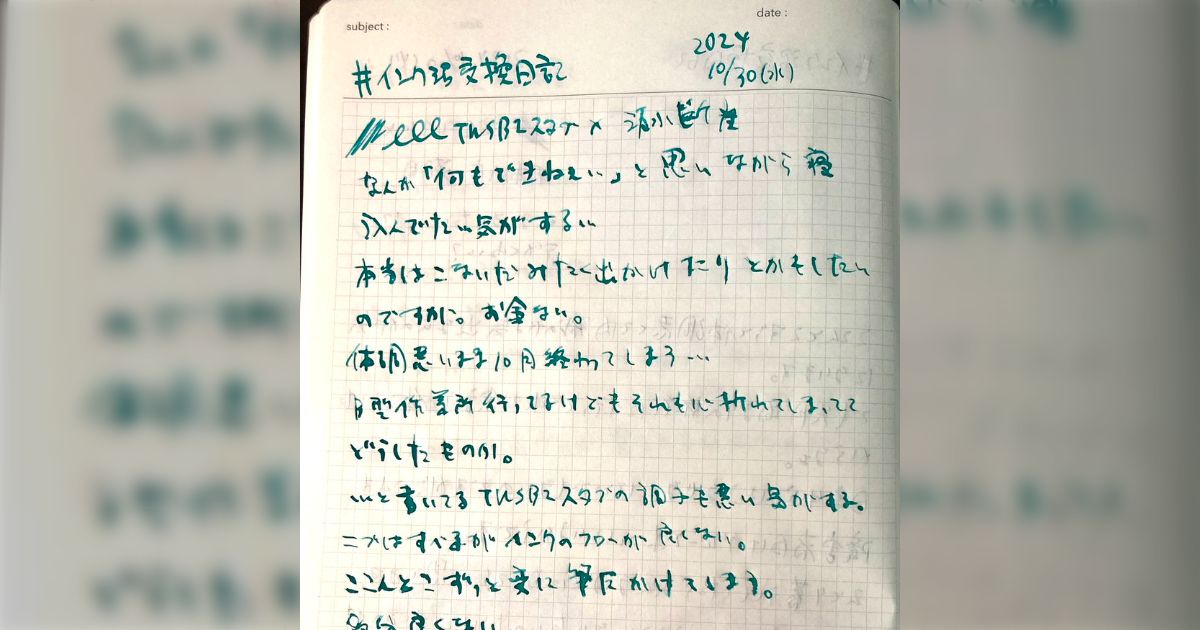 subject :
date :
2024
10/30(水)
#インク沼交換日記
TWSBIスタブ × 清水断崖
なんか「何もできねぇ…」と思いながら寝
込んでたい気がする…
本当はこないだみたく出かけたりとかもしたい
のですが。お金ない。
体調悪いまま10月終わってしまう…
B型作業所行ってるけどもそれも心折れてしまってて
どうしたものか。
…と書いてるTWSBIスタブの調子も悪い気がする。
ニブはすべるがインクのフローが良くない。
ここんとこずっと変に筆圧かけてします。
多分良くない